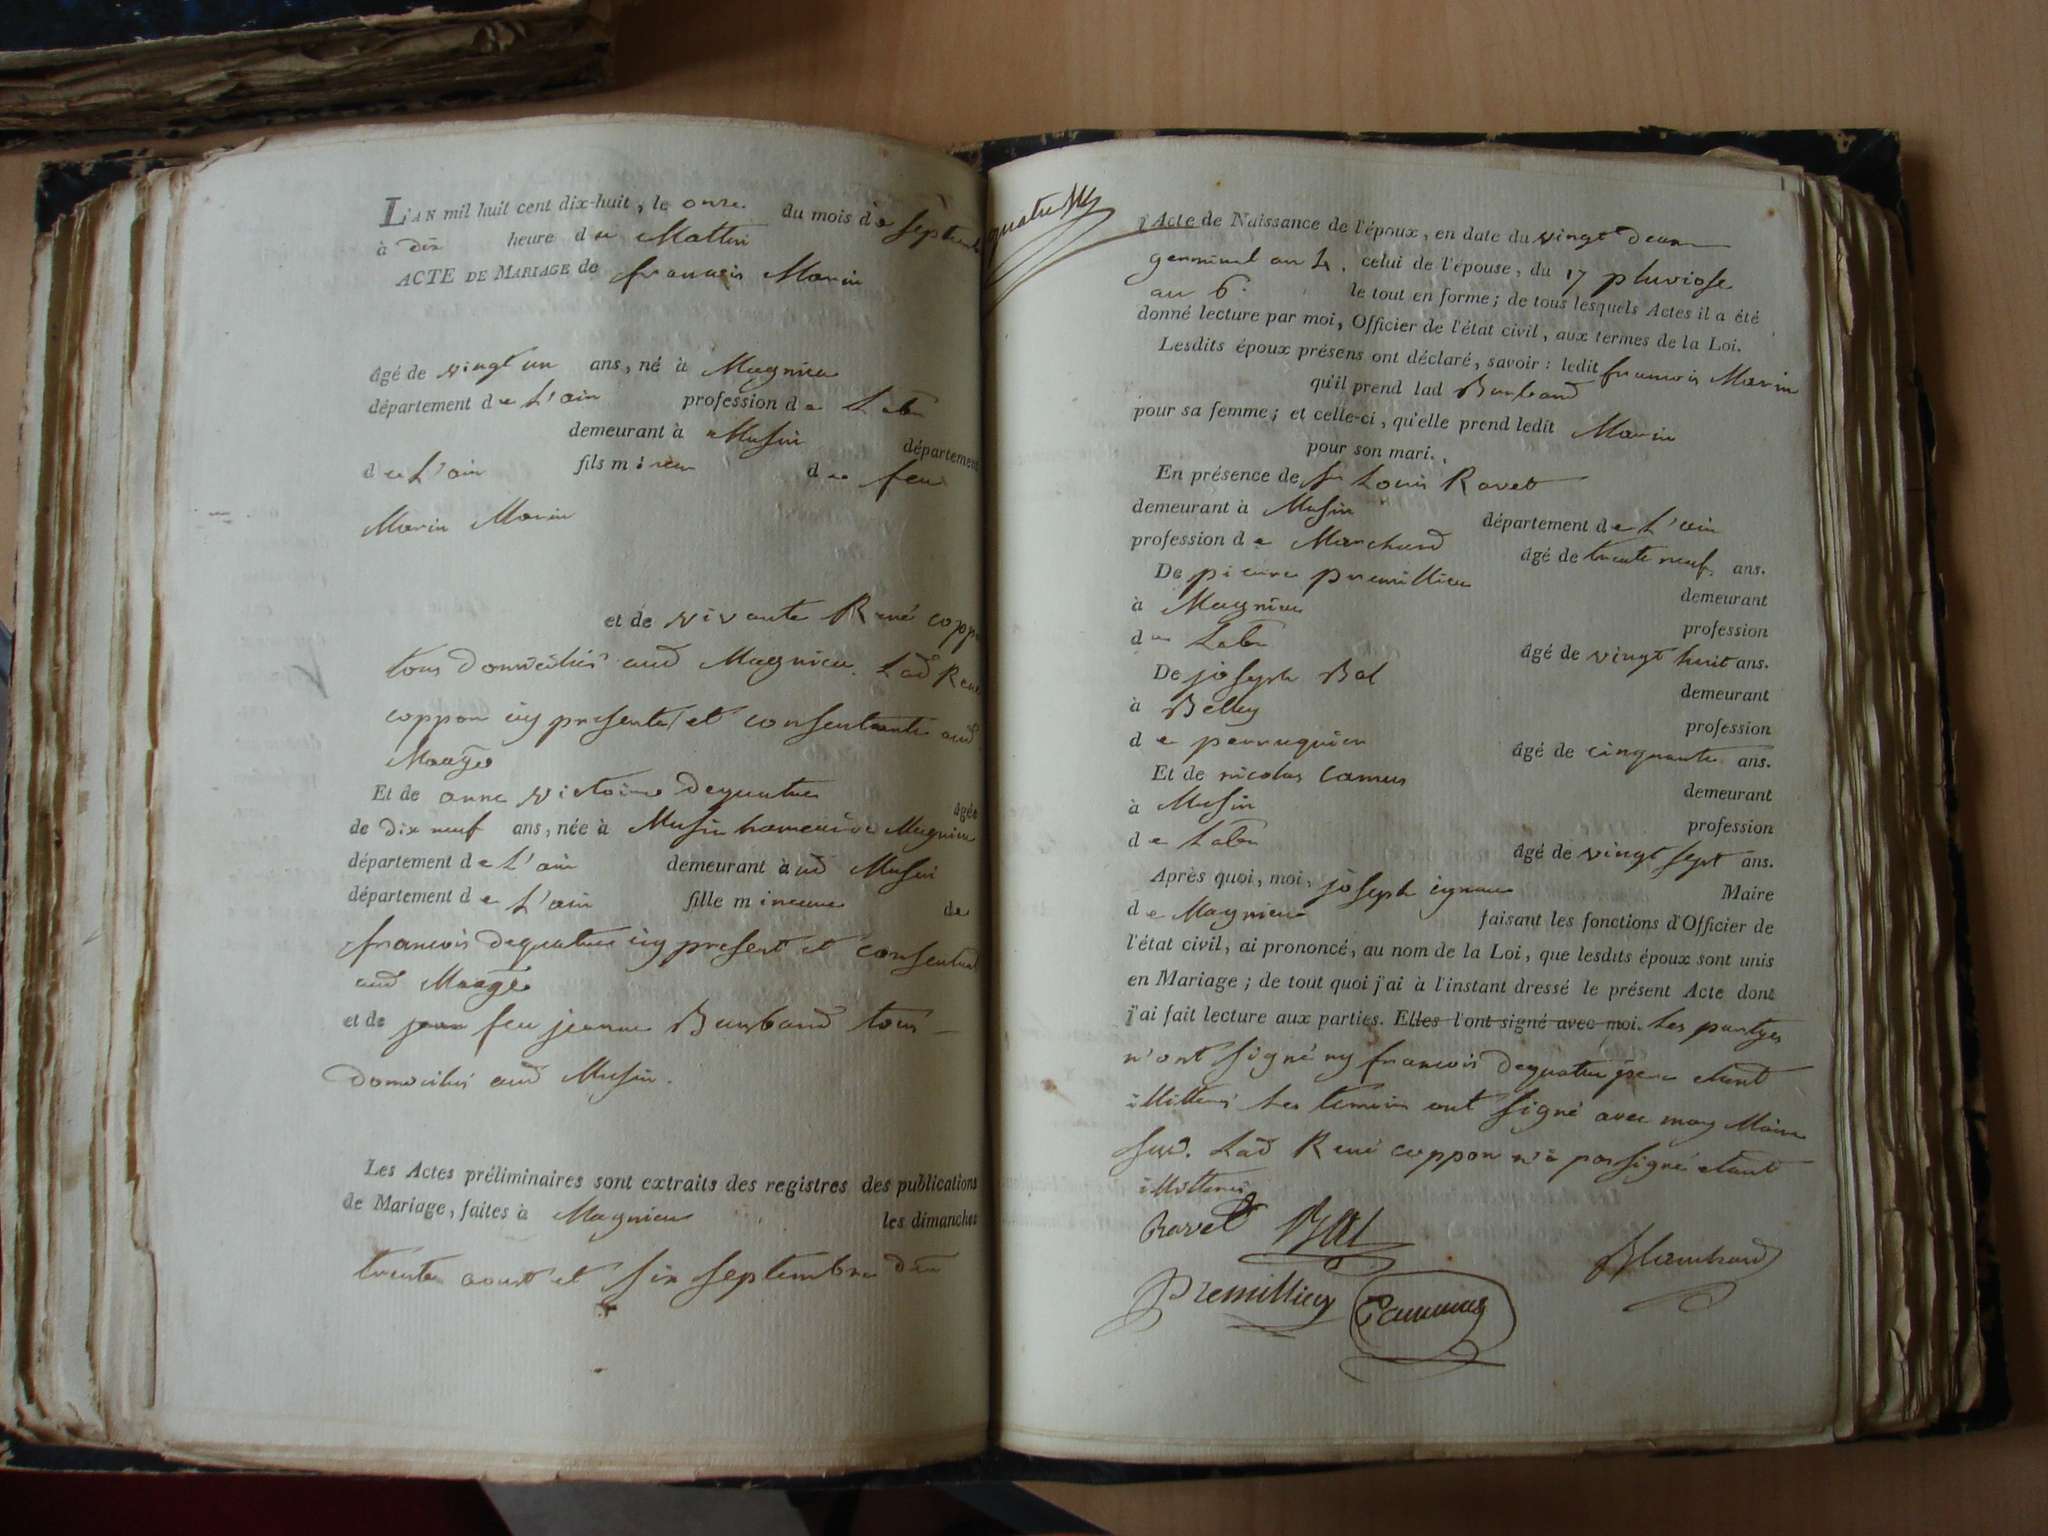 L'AN mil huit cent dix-huit, le onze du mois de Septemb
à dix heure du Mattin
ACTE DE MARIAGE de francois Marin
âgé de vingt un ans, né à Magnieu
département de L'ain profession de Labr
demeurant à Musin département
de L'ain fils mineur de feu
Marin Marin
et de vivante René coppon
tous domiciliés aud Magnieu. Lad René
coppon icy presente et consentente aud
Maage
Et de anne victoire dequatre âgée
de dix neuf ans, née à Musin hameau de Magnieu
département de L'ain demeurant aud Musin
département de L'ain fille mineure de
francois dequatre icy present et consentent
aud Maage
et de feu jeanne Barband tous
domicilis aud Musin.
Les Actes préliminaires sont extraits des registres des publications
de Mariage, faites à Magnieu les dimanches
trente aoust et six septembre dr
quatre
l'Acte de Naissance de l'époux, en date du vingt deux
germinal an 4. celui de l'épouse, du 17 pluviose
an 6. le tout en forme; de tous lesquels Actes il a été
donné lecture par moi, Officier de l'état civil, aux termes de la Loi.
Lesdits époux présens ont déclaré, savoir: ledit francois Marin
qu'il prend lad Barband
pour sa femme; et celle-ci, qu'elle prend ledit Marin
pour son mari.
En présence de Sr Louis Ravet
demeurant à Musin département de L'ain
profession de Marchand âgé de trente neuf ans.
De pierre premillieu demeurant
à Magnieu profession
de Labr âgé de vingt huit ans.
De joseph Bal demeurant
à Belley profession
de perruquier âgé de cinquante ans.
Et de nicolas Camus demeurant
à Musin profession
de Labr âgé de vingt sept ans.
Après quoi, moi, joseph ignace Maire
de Magnieu faisant les fonctions d'Officier de
l'état civil, ai prononcé, au nom de la Loi, que lesdits époux sont unis
en Mariage; de tout quoi j'ai à l'instant dressé le présent Acte dont
j'ai fait lecture aux parties. Elles l'ont signé avec moi. Les partyes
n'ont signé ny francois dequatre pere etant
illitteres Les temoins ont signé avec moy Maire
susd. Lad René coppon n'a pas signé etant
illitteres
Ravet Bal
Premillieu Cammus Blanchard